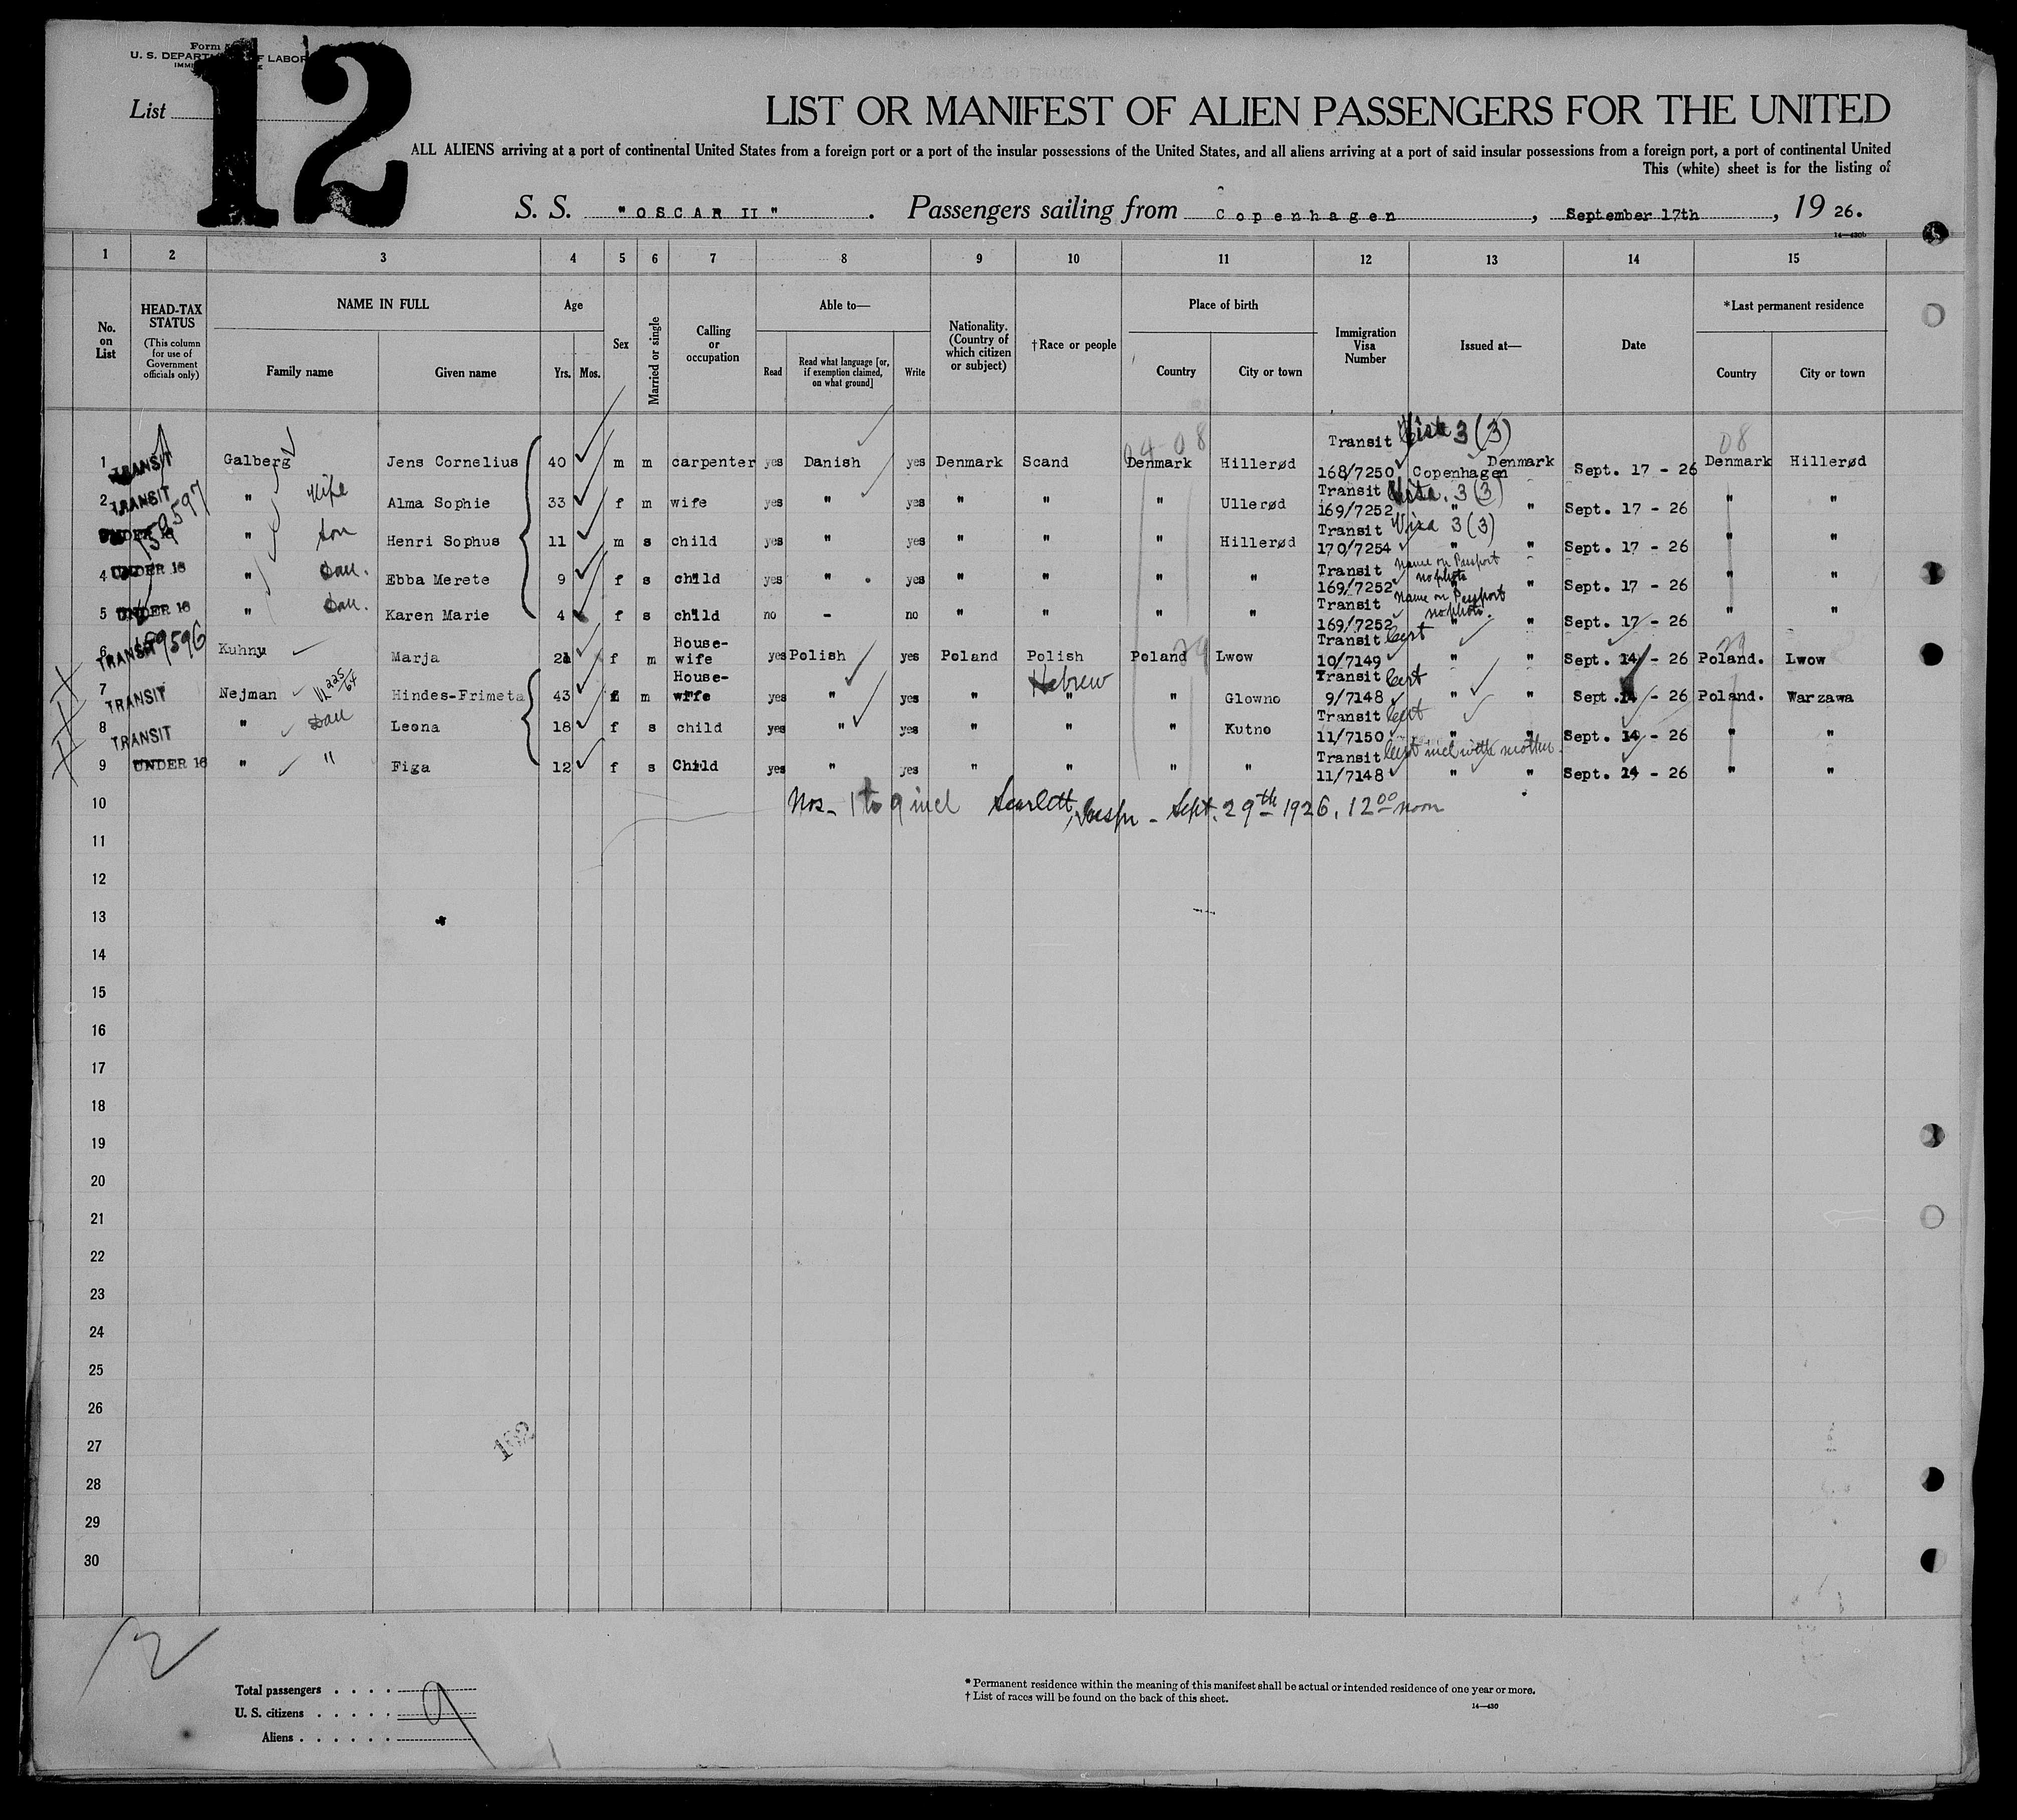 12
Form
U. S. DEPARTMENT OF LABOR
List
LIST OR MANIFEST OF ALIEN PASSENGERS FOR THE UNITED
ALL ALIENS arriving at a port of continental United States from a foreign port or a port of the insular possessions of the United States, and all aliens arriving at a port of said insular possessions from a foreign port, a port of continental United
This (white) sheet is for the listing of
S. S. "OSCAR II". Passengers sailing from Copenhagen, September 17th, 1926.
14—430b
1 2 3 4 5 6 7 8 9 10 11 12 13 14 15
No. on List
HEAD-TAX STATUS (This column for use of Government officials only)
NAME IN FULL
Family name Given name
Age
Yrs. Mos.
Sex
Married or single
Calling or occupation
Able to—
Read Read what language [or, if exemption claimed, on what ground] Write
Nationality. (Country of which citizen or subject)
†Race or people
Place of birth
Country City or town
Immigration Visa Number
Issued at—
Date
*Last permanent residence
Country City or town
04-08 08
Transit Visa 3 (3)
1 TRANSIT Galberg Jens Cornelius 40 m m carpenter yes Danish yes Denmark Scand Denmark Hillerød 168/7250 Copenhagen Denmark Sept. 17 - 26 Denmark Hillerød
Transit Visa. 3 (3)
2 TRANSIT " Wife Alma Sophie 33 f m wife yes " yes " " " Ullerød 169/7252 " " Sept. 17 - 26 " "
159597
Transit Visa 3 (3)
3 UNDER 16 " Son Henri Sophus 11 m s child yes " yes " " " Hillerød 170/7254 " " Sept. 17 - 26 " "
Transit Name on Passport no photo
4 UNDER 16 " Dau. Ebba Merete 9 f s child yes " yes " " " " 169/7252 " " Sept. 17 - 26 " "
Transit Name on Passport no photo.
5 UNDER 16 " Dau. Karen Marie 4 f s child no - no " " " " 169/7252 " " Sept. 17 - 26 " "
159596
Transit Cert
6 TRANSIT Kuhny Marja 21 f m House-wife yes Polish yes Poland Polish Poland Lwow 10/7149 " " Sept. 14 - 26 Poland. Lwow
Transit Cert
7 TRANSIT Nejman Hindes-Frimeta 43 f m House-wife yes " yes " Hebrew " " Glowno 9/7148 " " Sept. 14 - 26 Poland. Warzawa
Transit Cert
8 TRANSIT " Dau Leona 18 f s child yes " yes " " " Kutno 11/7150 " " Sept. 14 - 26 " "
Transit Cert incl with mother.
9 UNDER 16 " " Figa 12 f s Child yes " yes " " " " 11/7148 " " Sept. 14 - 26 " "
10 Nos- 1 to 9 incl Scarlett, Insp - Sept. 29th 1926, 12 00 noon
11
12
13
14
15
16
17
18
19
20
21
22
23
24
25
26
27
28
29
30
12
Total passengers
U. S. citizens 9
Aliens
* Permanent residence within the meaning of this manifest shall be actual or intended residence of one year or more.
† List of races will be found on the back of this sheet.
14—430